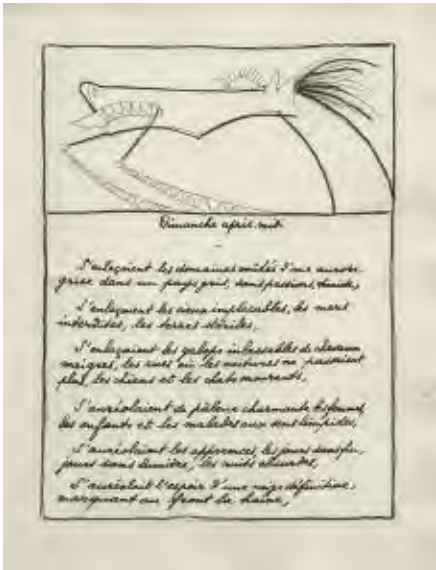 Dimanche après-midi
S'enlaçaient les domaines voûtés d'une aurore
grise dans un pays gris, sans passions, timide,
S'enlaçaient les cieux implacables, les mers
interdites, les terres stériles,
S'enlaçaient les galops inlassables de chevaux
maigres, les rues où les voitures ne passaient
plus, les chiens et les chats mourants,
S'auréolaient de pâleur charmante les femmes,
les enfants et les malades aux sens limpides,
S'auréolaient les apparences, les jours sans fin,
jours sans lumière, les nuits absurdes,
S'auréolait l'espoir d'une neige définitive,
marquant au front la haine,